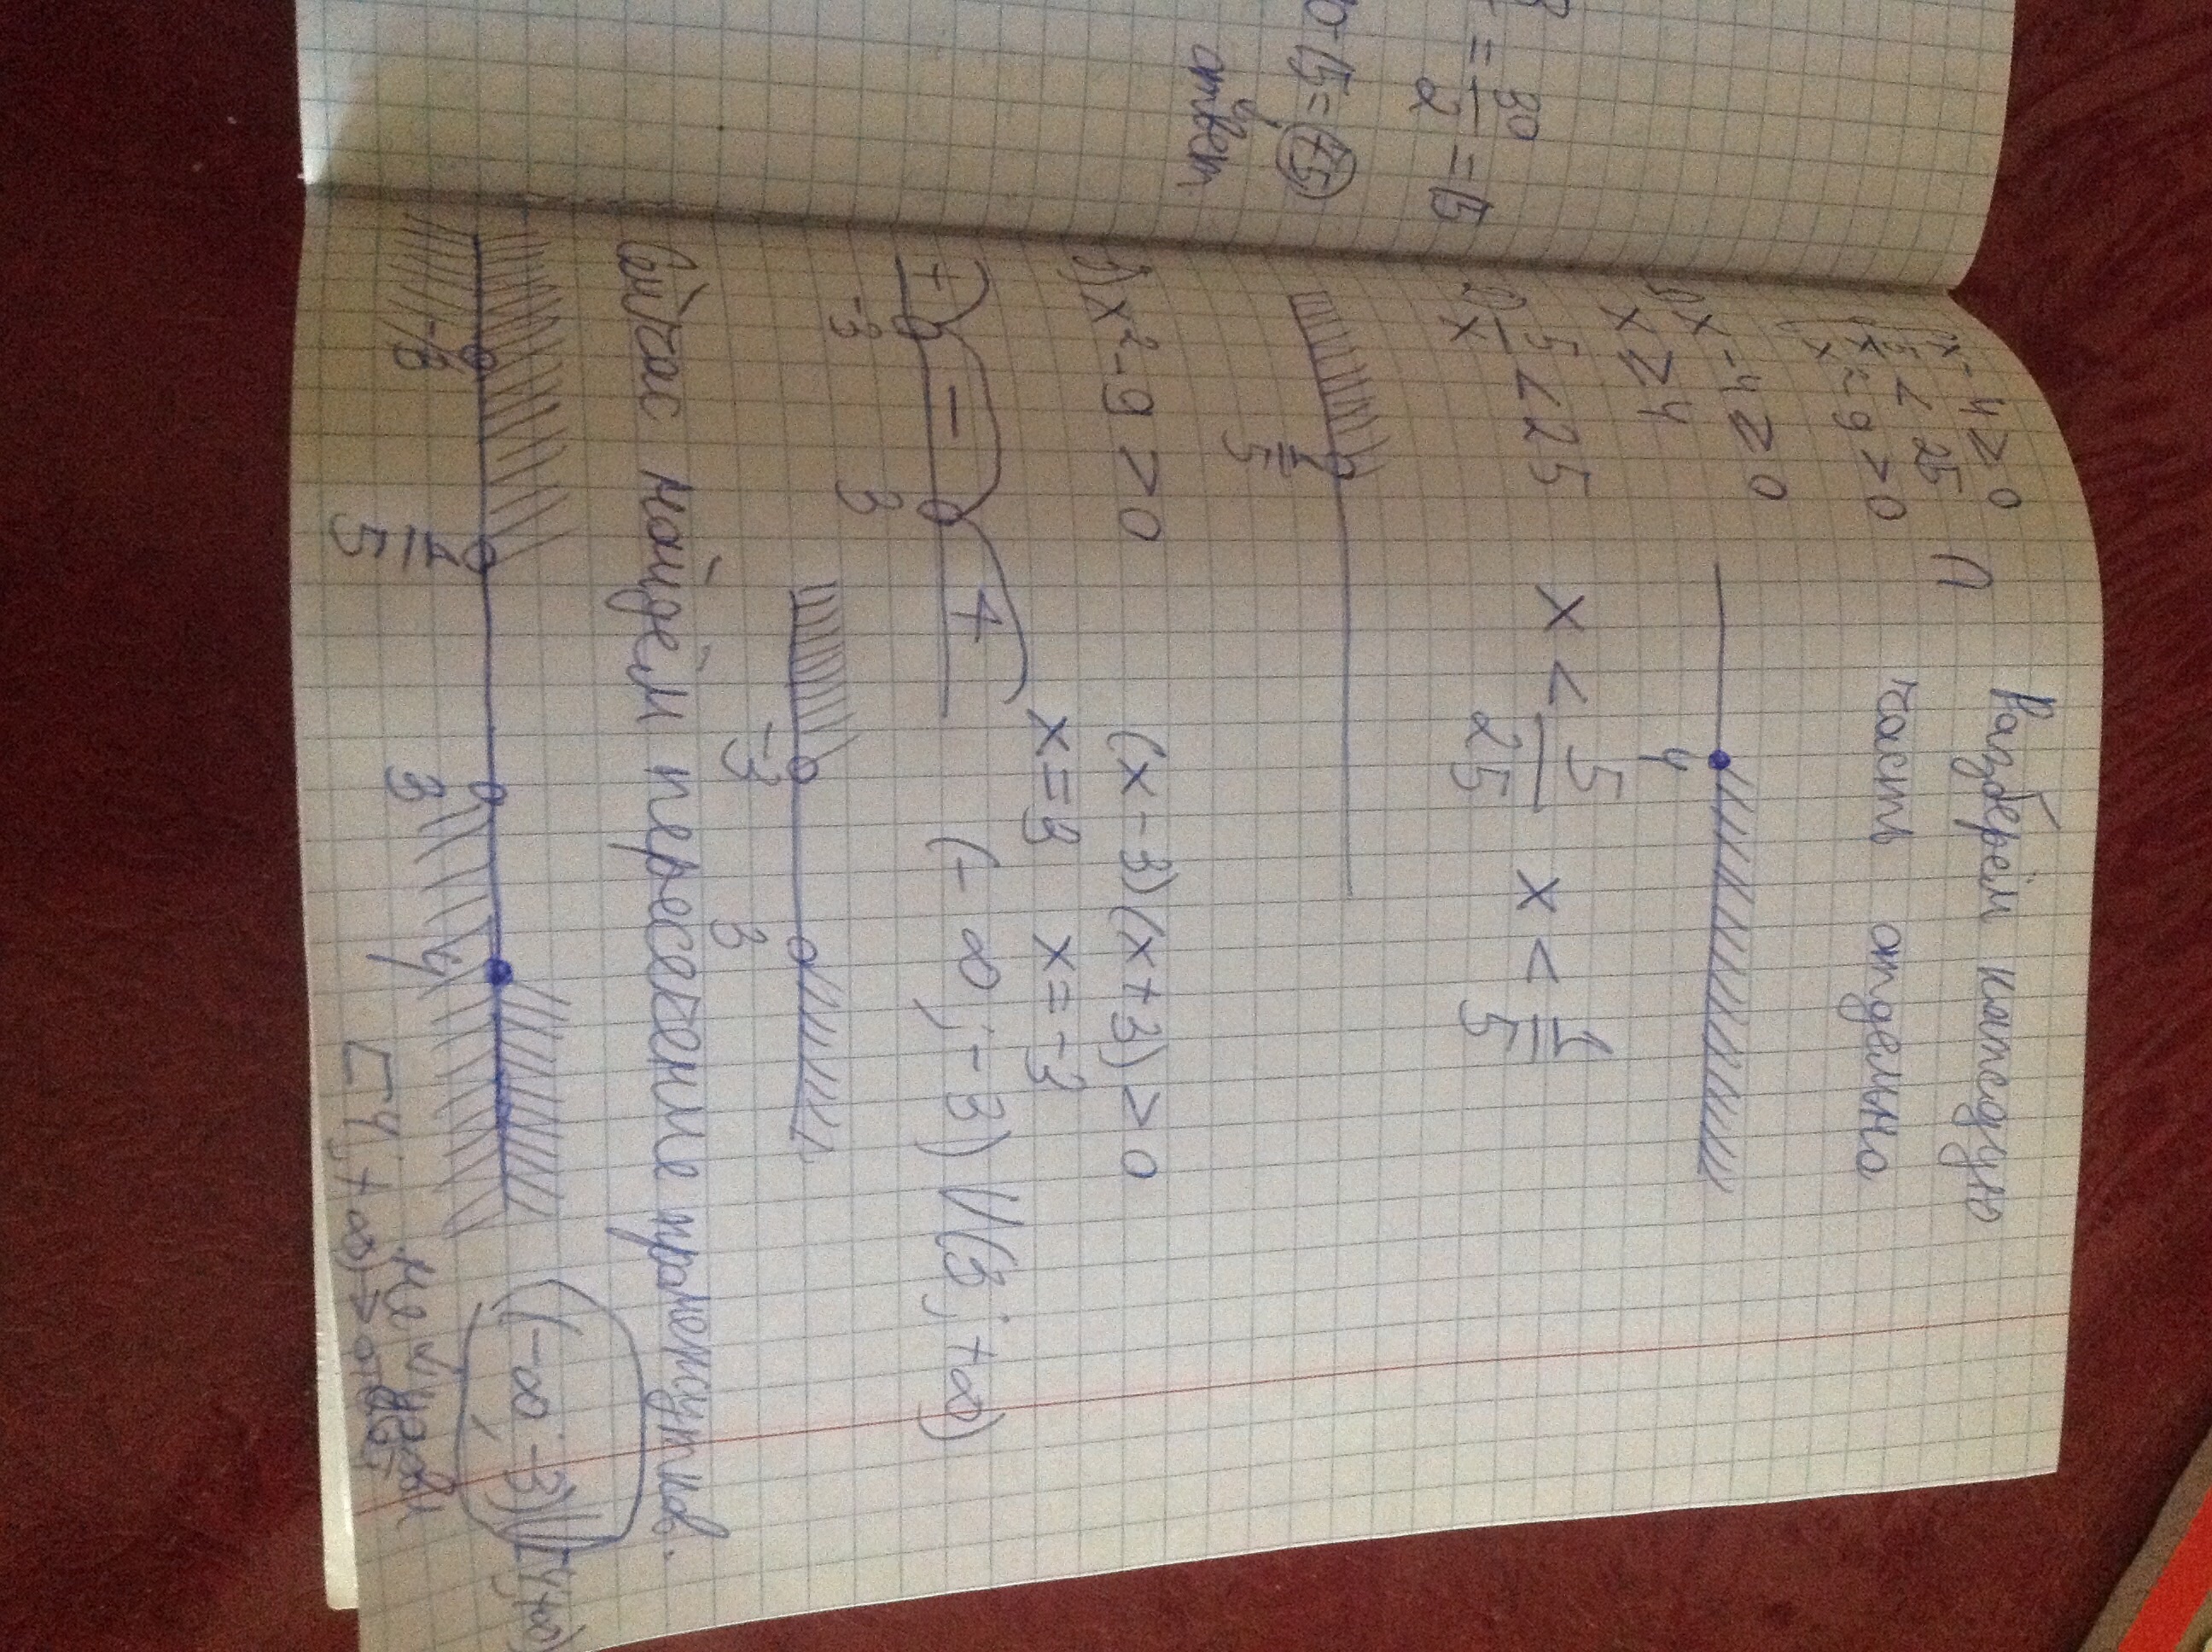 = 30/2 = 15
15 = 75
ответ
x - 4 ≥ 0
5/x < 25
x² - 9 > 0
∩
Разберём каждую
часть отдельно
1) x - 4 ≥ 0
x ≥ 4
4
2) 5/x < 25
x < 5/25
x < 1/5
1/5
3) x² - 9 > 0
(x - 3)(x + 3) > 0
x = 3
x = -3
+ - +
-3 3
(-∞; -3) U (3; +∞)
-3 3
Сейчас найдём пересечение промежутков.
-3 1/5 3 4
(-∞; -3) U [4; +∞)
[4; +∞) → ответ